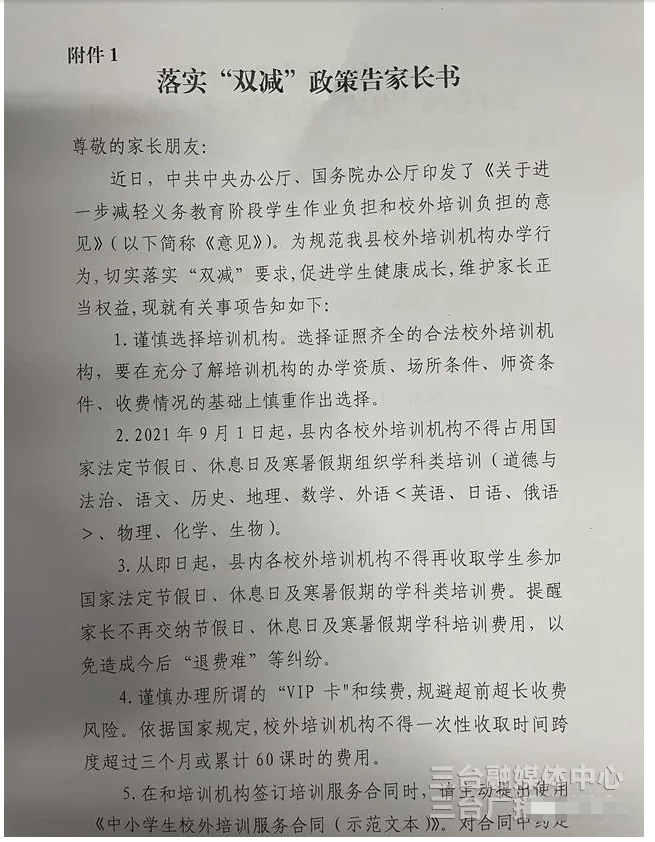 附件1
落实“双减”政策告家长书
尊敬的家长朋友:
近日，中共中央办公厅、国务院办公厅印发了《关于进
一步减轻义务教育阶段学生作业负担和校外培训负担的意
见》(以下简称《意见》)。为规范我县校外培训机构办学行
为,切实落实“双减”要求,促进学生健康成长,维护家长正
当权益,现就有关事项告知如下:
1.谨慎选择培训机构。选择证照齐全的合法校外培训机
构，要在充分了解培训机构的办学资质、场所条件、师资条
件、收费情况的基础上慎重作出选择。
2.2021年9月1日起,县内各校外培训机构不得占用国
家法定节假日、休息日及寒暑假期组织学科类培训(道德与
法治、语文、历史、地理、数学、外语<英语、日语、俄语
>、物理、化学、生物)。
3.从即日起，县内各校外培训机构不得再收取学生参加
国家法定节假日、休息日及寒暑假期的学科类培训费。提醒
家长不再交纳节假日、休息日及寒暑假期学科培训费用，以
免造成今后“退费难”等纠纷。
4.谨慎办理所谓的“VIP 卡"和续费,规避超前超长收费
风险。依据国家规定,校外培训机构不得一次性收取时间跨
度超过三个月或累计60课时的费用。
5.在和培训机构签订培训服务合同时,请主动提出使用
《中小学生校外培训服务合同(示范文本)》。对合同中约定
三台融媒体中心
三台广